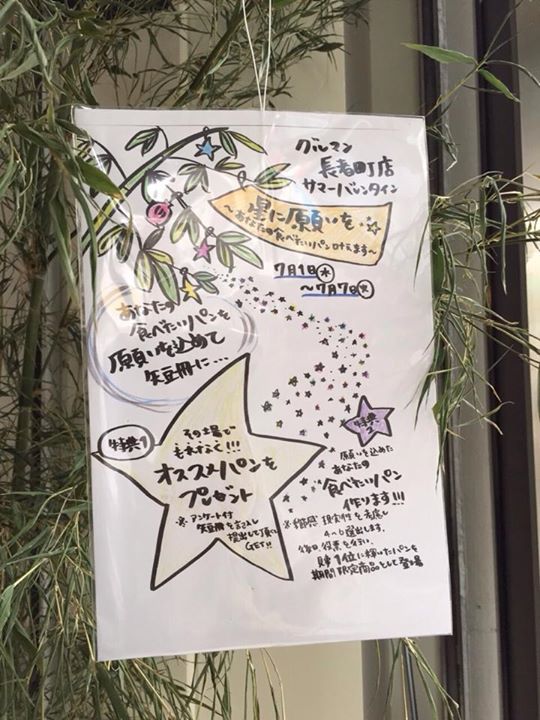 グルマン
長者町店
サマーバレンタイン
星に願いを
～あなたの食べたいパン叶えます～
7月1日㊌
～7月7日㊋
あなたの
食べたいパンを
願いを込めて
短冊に…
特典1
その場で
もれなく!!!
オススメパンを
プレゼント
※アンケート付
短冊を記入し
提出して頂くと
GET!!
特典2
願いを込めた
あなたの
食べたいパン
作ります!!!
現実性を考慮し
選出します。
投票を行い、
1位に輝いたパンを
期間限定商品として登場